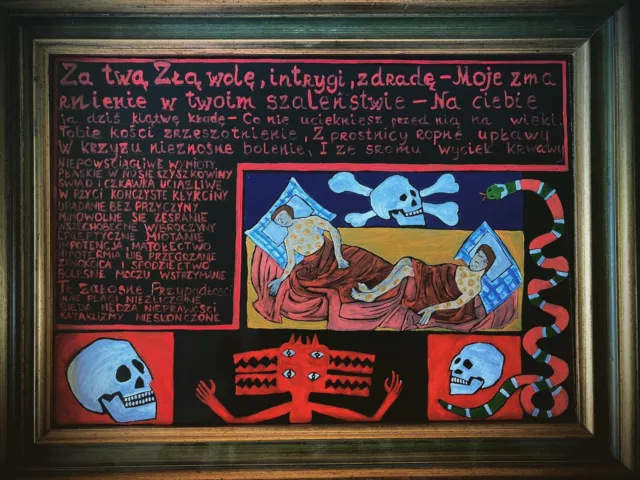 Za twą Złą wolę, intrygi, zdradę – Moje zma
rnienie w twoim szaleństwie – Na ciebie
ja dziś klątwę kładę – Co nie uciekniesz przed nią na wieki.
Tobie kości zrzeszotnienie, Z prostnicy ropne upławy
W krzyżu nieznośne bolenie, I ze sromu wyciek krwawy
NIEPOWŚCIĄGLIWE WYMIOTY
PŁASKIE W NOSIE SZYSZKOWINY
ŚWIĄD I CZKAWKA UCIĄŻLIWE
W RZYCI KOŃCZYSTE KŁYKCINY
UPADANIE BEZ PRZYCZYNY
MIMOWOLNE SIĘ ZESRANIE
WSZECHOBECNE WYBROCZYNY
EPILEPTYCZNE MIOTANIE
IMPOTENCJA, MATOŁECTWO
HIPOTERMIA LUB PRZEGRZANIE
I
BOLESNE MOCZU WSTRZYMANIE
Te żałosne Przypadłości
INNE PLAGI NIEZLICZONE
BIEDA NĘDZA NIEPRAWOŚCI
KATAKLIZMY NIESKOŃCZONE